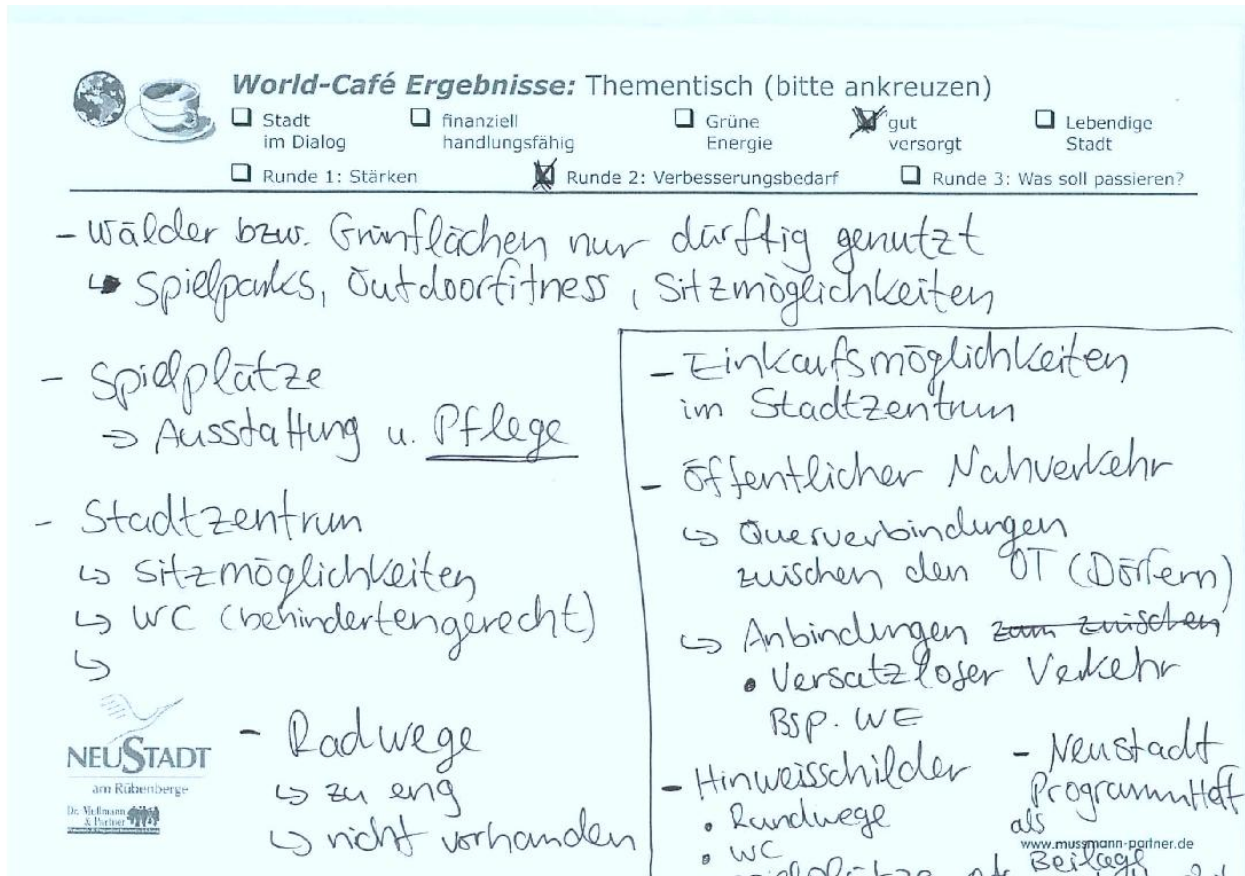 World-Café Ergebnisse: Thementisch (bitte ankreuzen)
Stadt im Dialog
finanziell handlungsfähig
Grüne Energie
gut versorgt
Lebendige Stadt
Runde 1: Stärken
Runde 2: Verbesserungsbedarf
Runde 3: Was soll passieren?
- Wälder bzw. Grünflächen nur dürftig genutzt
↳ Spielparks, Outdoorfitness, Sitzmöglichkeiten
- Spielplätze
⇒ Ausstattung u. Pflege
- Stadtzentrum
↳ Sitzmöglichkeiten
↳ WC (behindertengerecht)
↳
- Radwege
↳ zu eng
↳ nicht vorhanden
- Einkaufsmöglichkeiten
im Stadtzentrum
- Öffentlicher Nahverkehr
↳ Querverbindungen
zwischen den OT (Dörfern)
↳ Anbindungen zum zwischen
• Versatzloser Verkehr
Bsp. WE
- Hinweisschilder
• Rundwege
• WC
Spielplätze
- Neustadt
Programmheft
als
Beilage
NEUSTADT
am Rübenberge
Dr. Mußmann
& Partner
www.mussmann-partner.de